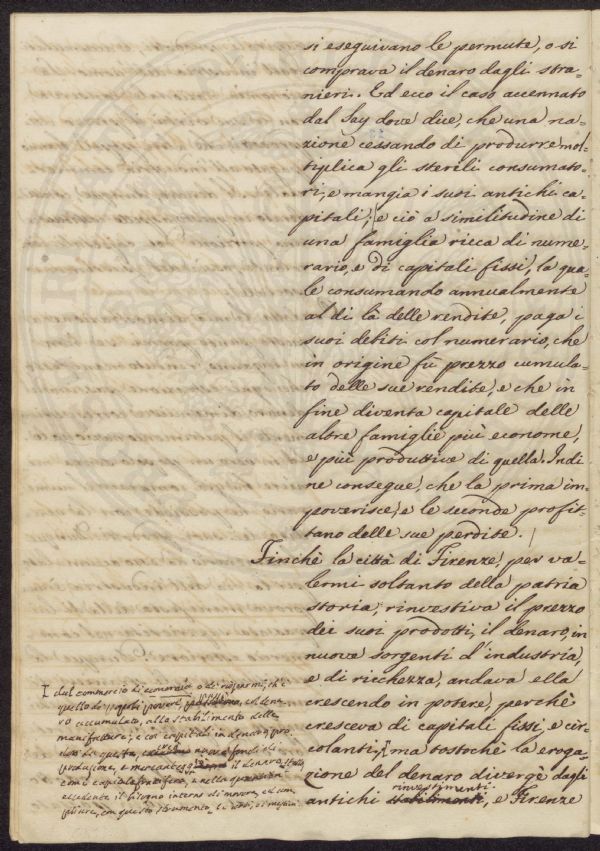 si eseguivano le permute, o si
comprava il denaro dagli stra-
nieri. Ed ecco il caso accennato
dal Say dove dice, che una na-
zione cessando di produrre mol-
tiplica gli sterili consumato-
ri, e mangia i suoi antichi ca-
pitali; e ciò a similitudine di
una famiglia ricca di nume-
rario, e di capitali fissi, la qua-
le consumando annualmente
al di là delle rendite, paga i
suoi debiti col numerario, che
in origine fù prezzo cumula-
to delle sue rendite, e che in
fine diventa capitale delle
altre famiglie più econome,
e più produttive di quella. Indi
ne consegue, che la prima im-
poverisce, e le seconde profit-
tano delle sue perdite.
Finchè la città di Firenze, per va-
lermi soltanto della patria
storia, rinvestiva il prezzo
dei suoi prodotti, il denaro, in
nuove sorgenti d'industria,
e di ricchezza, andava ella
crescendo in potere, perchè
cresceva di capitali fissi, e cir-
colanti; ma tostochè la eroga-
zione del denaro divergè dagli
antichi stabilimenti investimenti, e Firenze
dal commercio di economia o di risparmj, ch'è
quello de' popoli poveri, col dena-
ro accumulato, allo stabilimento delle
manifatture; e coi capitali in denaro pro-
dotti da queste, nuovi fondi di
produzione, il denaro
come capitale, e nella
eccedente il bisogno interno di